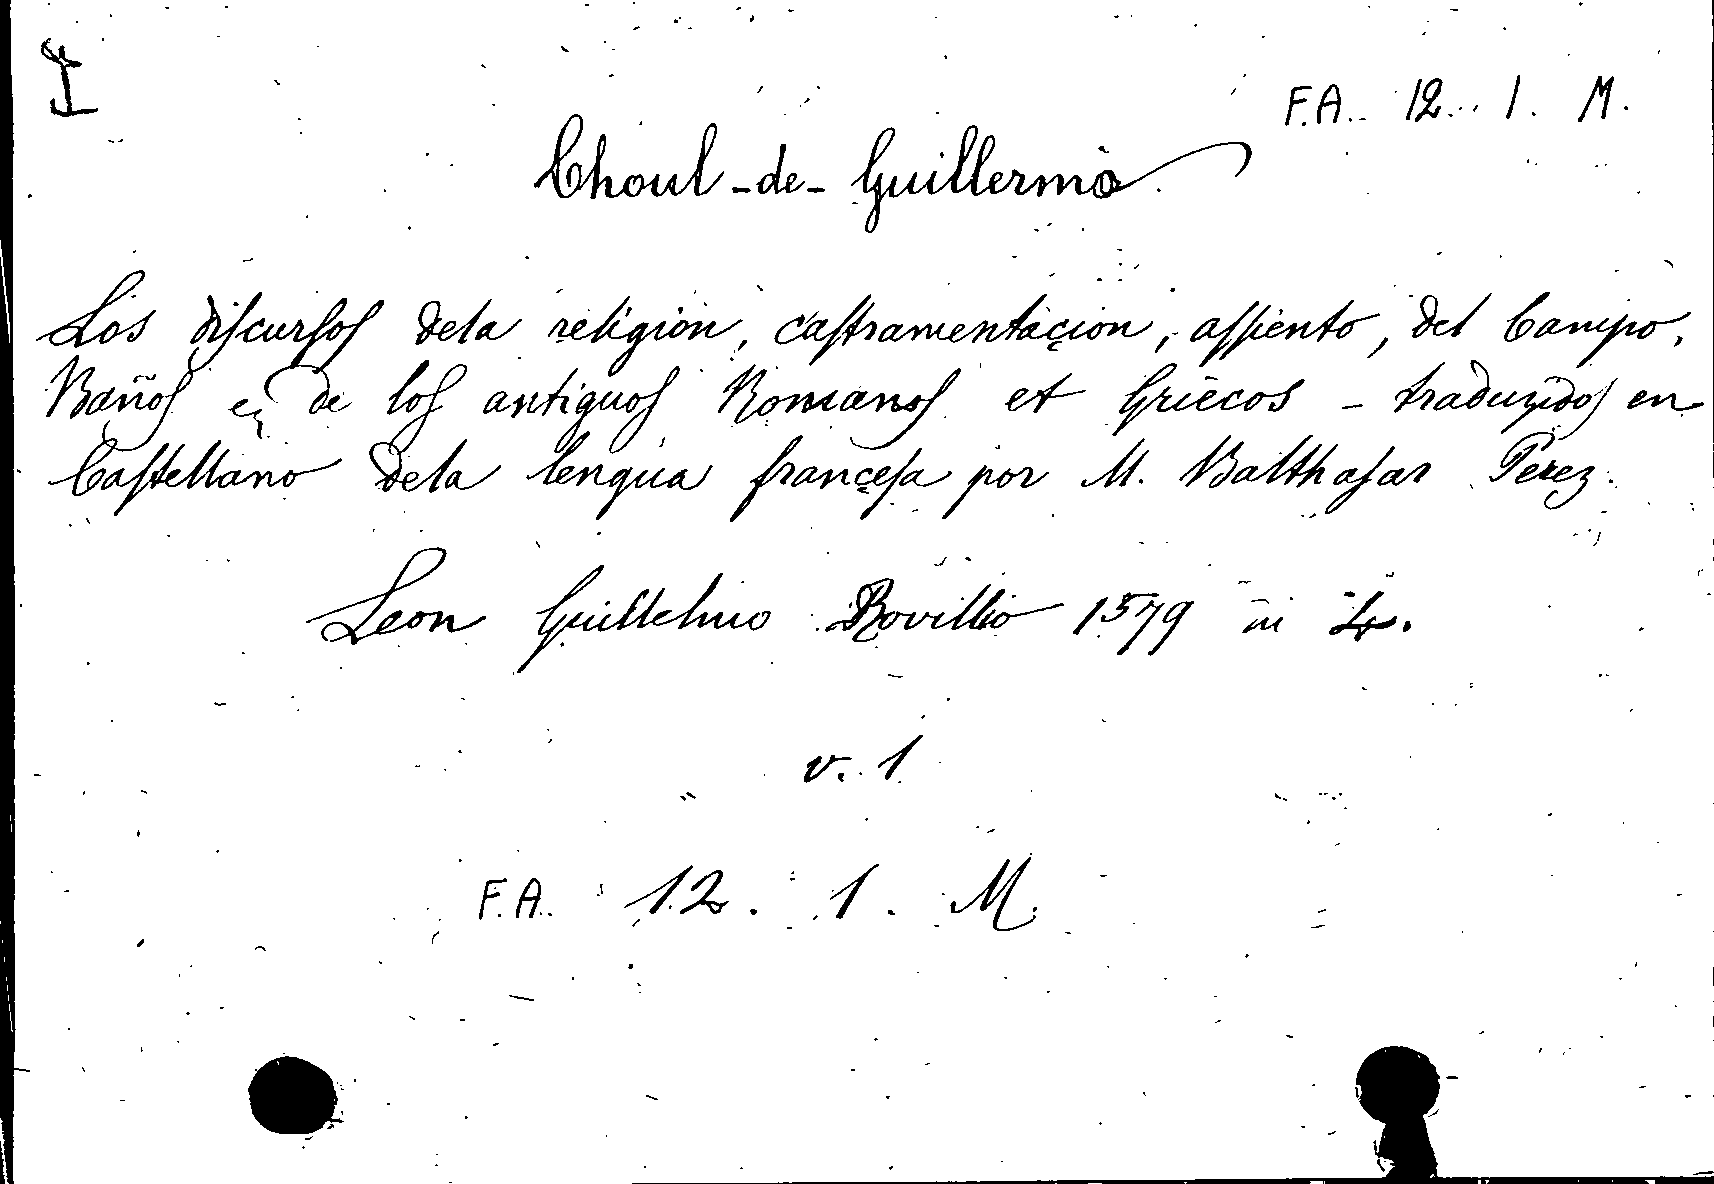 F.A. 12. 1. M.
Choul-de-Guillermo
Los diſcurſoſ dela religion, caſtramentaçion, aſſiento, del Campo,
Bañoſ eʒ de loſ antiguoſ Romanoſ et Griecos - traduzidoſ en
Caſtellano dela lengua françeſa por M. Balthaſar Perez.
Leon Guillelmo Rovillio 1579 in 4.
v. 1
F.A. 12. 1. M.